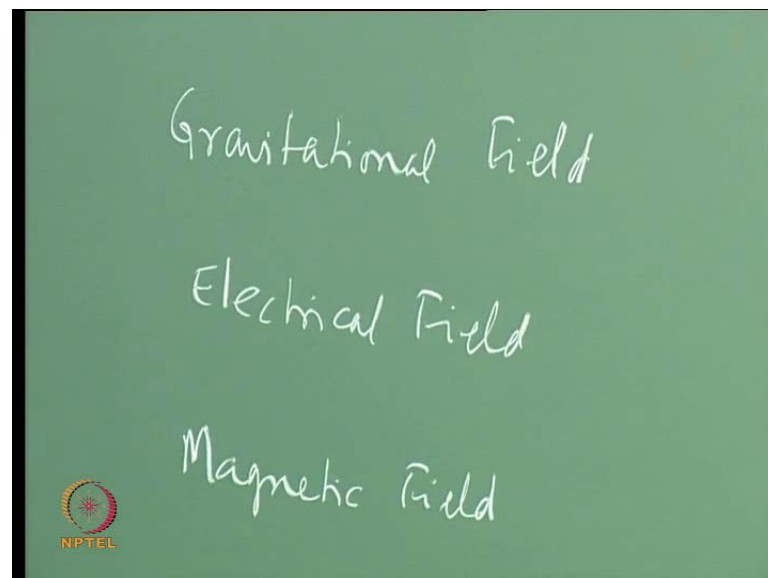 Gravitational Field
Electrical Field
Magnetic Field
NPTEL